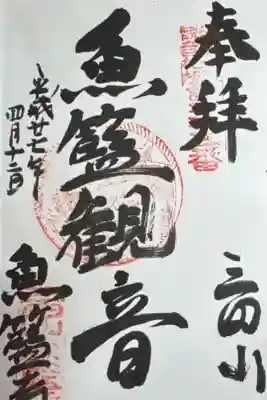 奉拝
三田山
魚籃観音
平成廿七年
四月十二日
魚籃寺